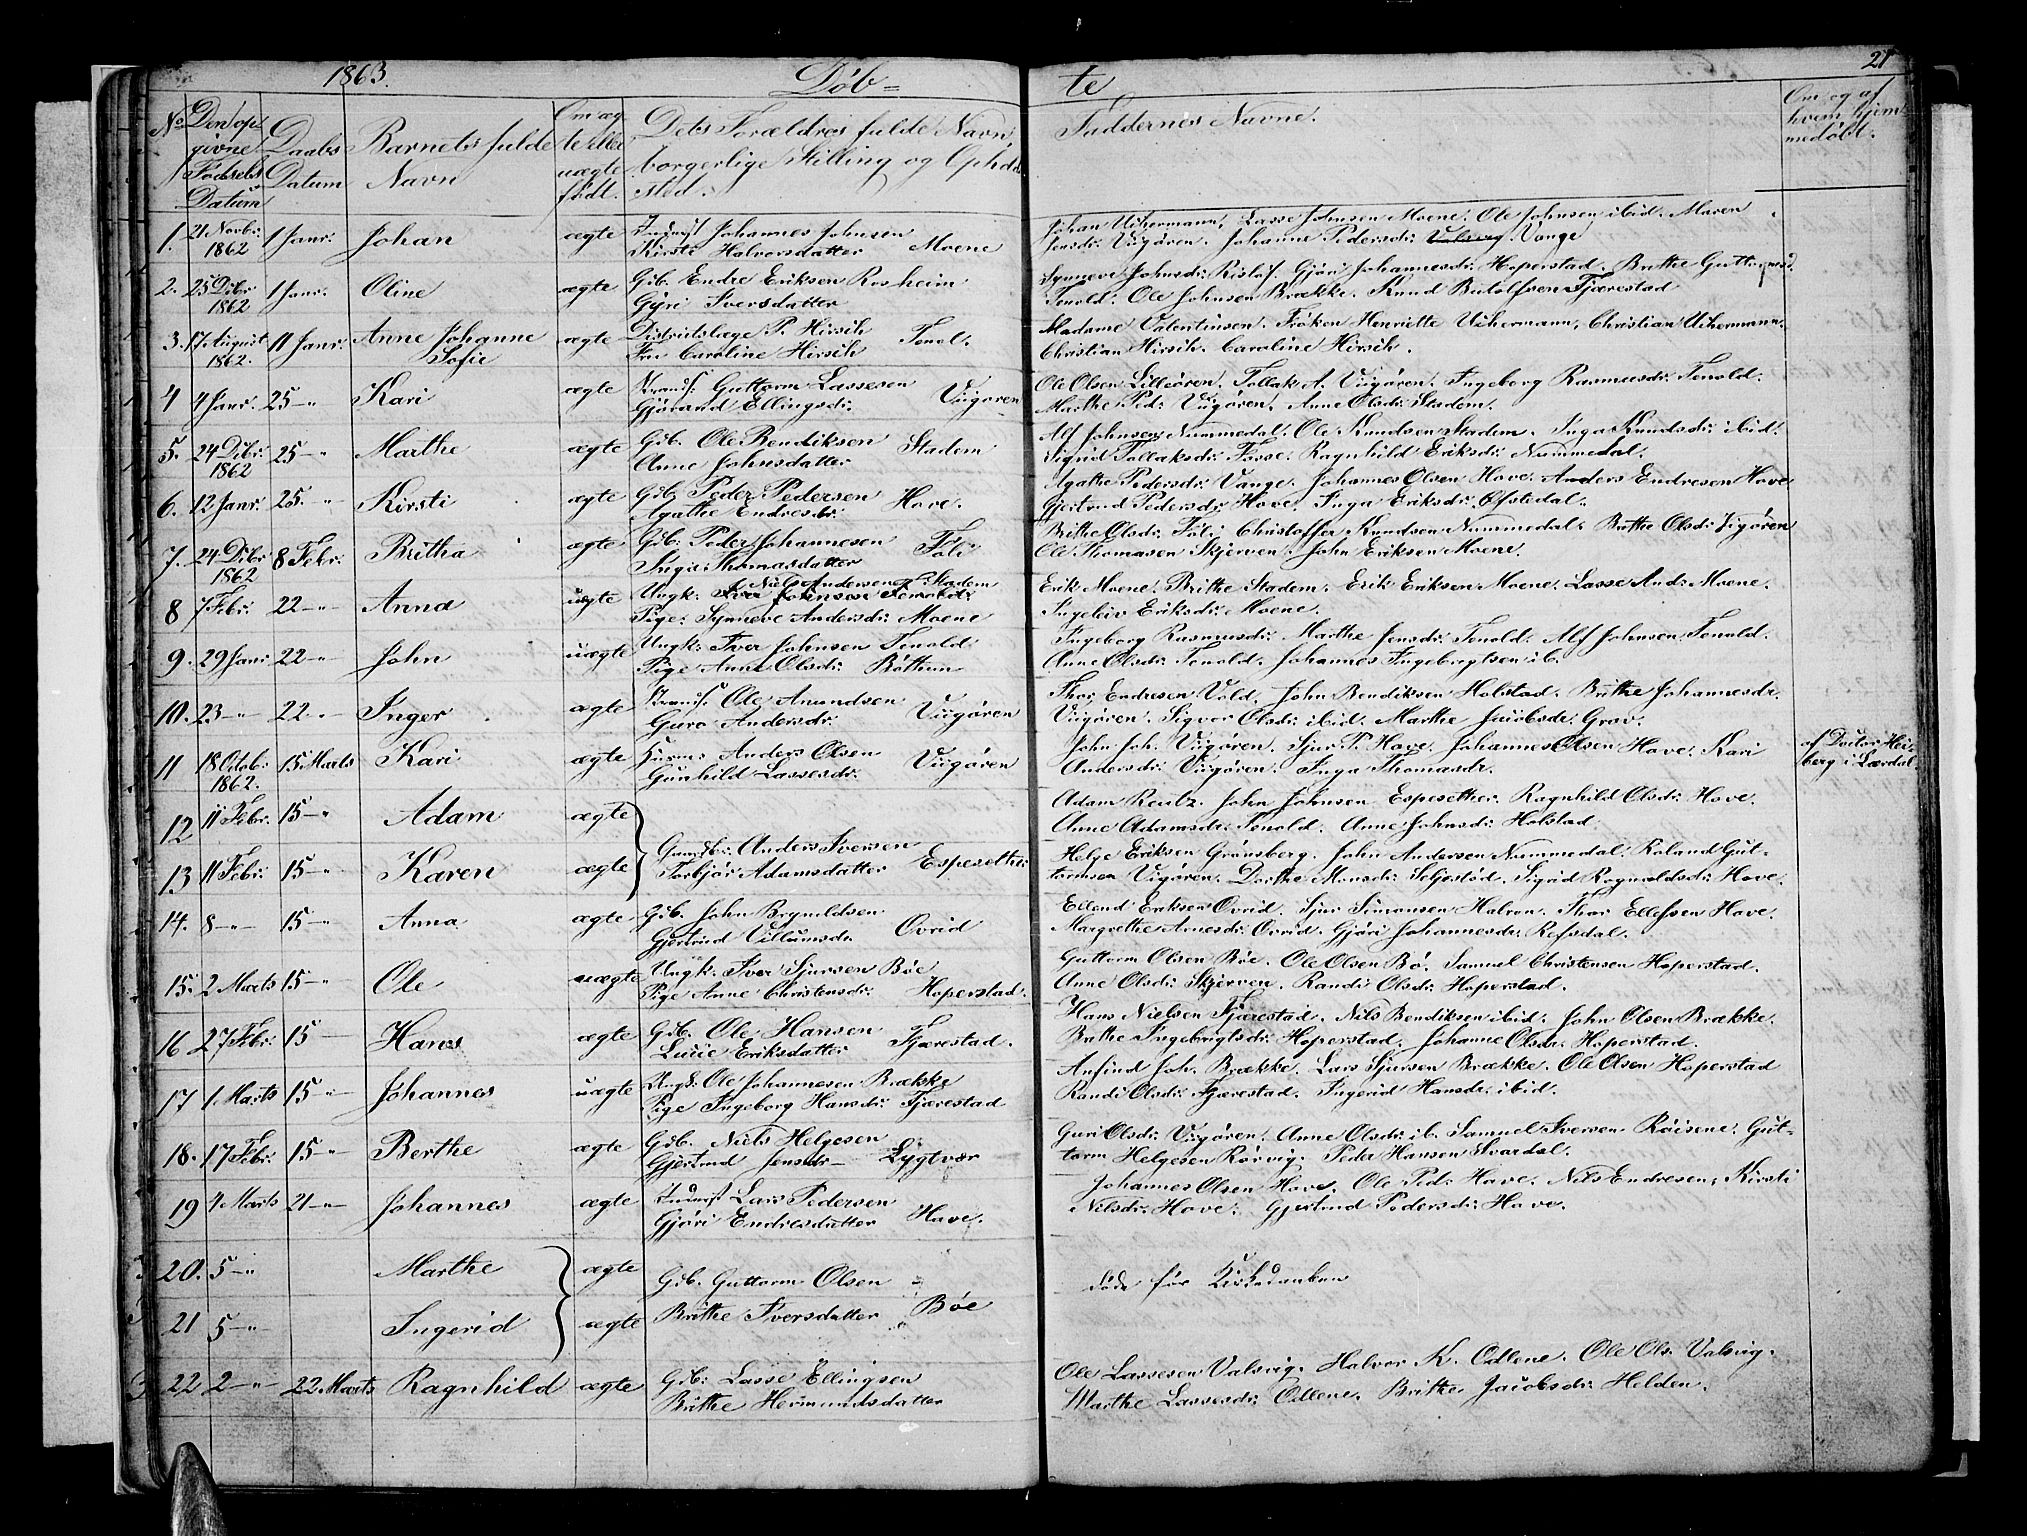 1863. Döb= te 21
No Den op-
givne
Födsels
Datum
Daabs
Datum
Barnets fulde
Navn
Om æg-
te eller
uægte
født.
Dets Forældres fulde Navn,
borgerlige Stilling og Opholds
sted.
Faddernes Navne.
Om og af
hvem hjem-
medöbt.
1. 21 Novbr. 1862 1 Janr. Johan ægte Johannes Johnsen
Kirsti Halvorsdatter Moene
Johan Uchermann, Lasse Johnsen Moene. Ole Johnsen ibid. Maren
Jensdr. Viigören. Johanne Pedersdr. Valsvig. Vange
2. 25 Dcbr. 1862 1 Janr. Oline ægte Gib. Endre Eriksen Rosheim
Gjöri Iversdatter
Synneve Johnsdr. Gjöri Johannesdr. Hoperstad. Brithe
Tenold. Ole Johnsen Brække. Knud Botolfsen Fjærestad
3. 17 August 1862. 11 Janr. Anne Johanne
Sofie ægte Distriktslæge P. Hirsch
Fru Caroline Hirsch Tenol.
Madame Valentinsen. Fröken Henriette Uchermann, Christian Uchermann.
Christian Hirsch. Caroline Hirsch.
4 4 Janr. 25 -"- Kari ægte Guttorm Lassesen
Gjörand Ellingsdr. Viigören
Ole Olsen Lilleören. Tollak A. Viigören. Ingeborg Rasmusdr. Tenold.
Marthe Ped. Viigören. Anne Olsdr. Stadem.
5. 24 Dcbr. 1862 25 -"- Marthe ægte Gib. Ole Bendiksen
Anne Johnsdatter Stadem
Alf Johnsen Nummedal. Ole Knudsen Stadem. Inga Knudsdr. ibid.
Sigrid Tollaksdr. Fosse. Ragnhild Eriksdr. Nummedal.
6. 12 Janr. 25. -"- Kirsti ægte Gib. Peder Pedersen
Agathe Endresdr. Hove.
Agathe Pedersdr. Vange. Johannes Olsen Hove. Anders Endresen Hove
Gjertrud Pedersdr. Hove. Inga Eriksdr. Ofstedal.
7. 24 Dcbr. 1862 8 Febr. Britha ægte Gib. Peder Johannesen
Inga Thomasdatter Föli
Brithe Olsdr. Föli. Christoffer Knudsen Nummedal. Brithe Olsdr. Vigören
Ole Thomasen Skjerven. John Eriksen Moene.
8 7 Febr. 22 -"- Anna uægte Ungk: Niels Andersen Stadem
Iver Johnsen Tenold:
Pige: Synneve Andersdr. Moene
Erik Moene. Brithe Stadem. Erik Eriksen Moene. Lasse And: Moene.
Ingeleiv Eriksdr. Moene.
9. 29 Janr. 22 -"- John uægte Ungk: Iver Johnsen Tenold
Pige Anne Olsdr. Böttun
Ingeborg Rasmusdr. Marthe Jensdr. Tenold. Alf Johnsen Tenold.
Anne Olsdr. Tenold. Johannes Ingebrigtsen ib.
10. 23 -"- 22 -"- Inger ægte Ole Amundsen
Guro Andersdr. Viigören
Thor Endresen Vold. John Bendiksen Holstad. Brithe Johannesdr.
Viigören. Sigvor Olsdr. ibid. Marthe Jacobsdr. Grav.
11 18 Octob. 1862. 15 Marts Kari ægte Anders Olsen
Gunhild Lassesdr. Viigören
John Joh. Viigören. Sjur P. Hove. Johannes Olsen Hove. Kari
Andersdr. Viigören. Inga Thomasdr.
af Doctor Hei-
berg i Lærdal.
12 11 Febr. 15 -"- Adam ægte
Adam Reutz. John Johnsen Espesether. Ragnhild Olsdr. Hove.
Anne Adamsdr. Tenold. Anne Johnsdr. Holstad.
13 11 Febr. 15 -"- Karen ægte Gaardbr. Anders Iversen
Torbjör Adamsdatter Espesether
Helge Eriksen Grönsberg. John Andersen Nummedal. Roland Gut-
tormsen Vigören. Dorthe Monsdr. Sigrid Rognaldsdr. Hove.
14. 8 -"- 15 -"- Anna ægte Gib. John Brynildsen
Gjertrud Villumsdr. Ovrid
Erlend Eriksen Ovrid. Sjur Simonsen Halron. Thor Ellefsen Hove.
Margrethe Arnesdr. Ovrid. Gjöri Johannesdr. Refsdal.
15. 2 Marts 15 -"- Ole uægte Ungk. Iver Sjursen Böe
Pige Anne Christensdr. Hoperstad.
Guttorm Olsen Böe. Ole Olsen Bö. Samuel Christensen Hoperstad.
Anne Olsdr. Skjerven. Randi Olsdr. Hoperstad.
16 27 Febr. 15 -"- Hans ægte Gib. Ole Hansen
Lucie Eriksdatter Fjærestad.
Hans Nielsen Fjærestad. Nils Bendiksen ibid. John Olsen Brække.
Brithe Ingebrigtsdr. Hoperstad. Johanne Olsdr. Hoperstad.
17 1 Marts 15 -"- Johannes uægte Ungk. Ole Johannesen Brække
Pige Ingeborg Hansdr. Fjærestad
Anfind Joh. Brække. Lars Sjursen Brække. Ole Olsen Hoperstad
Randi Olsdr. Fjærestad. Ingerid Hansdr. ibid.
18. 17 Febr. 15 -"- Berthe ægte Gib. Niels Helgesen
Gjertrud Jensdr. Lygtvær
Guri Olsdr. Viigören. Anne Olsdr. ib. Samuel Iversen Röisene. Gut-
torm Helgesen Rörvig. Peder Hansen Svardal.
19 4 Marts 21 -"- Johannes ægte Lars Pedersen
Gjöri Endresdatter Hove.
Johannes Olsen Hove. Ole Ped. Hove. Nils Endresen, Kirsti
Nilsdr. Hove. Gjertrud Pedersdr. Hove.
20. 5 -"- Marthe ægte Gib. Guttorm Olsen
döde för Kirkedaaben
21 5 -"- Ingerid ægte Brithe Iversdatter Böe
22 2 -"- 22. Marts Ragnhild ægte Gib: Lasse Ellingsen
Brithe Hermundsdatter
Ole Lassesen Valsvig. Halvor K. Odlene. Ole Ols. Valsvig.
Marthe Lassesdr. Odlene. Brithe Jacobsdr. Helden.